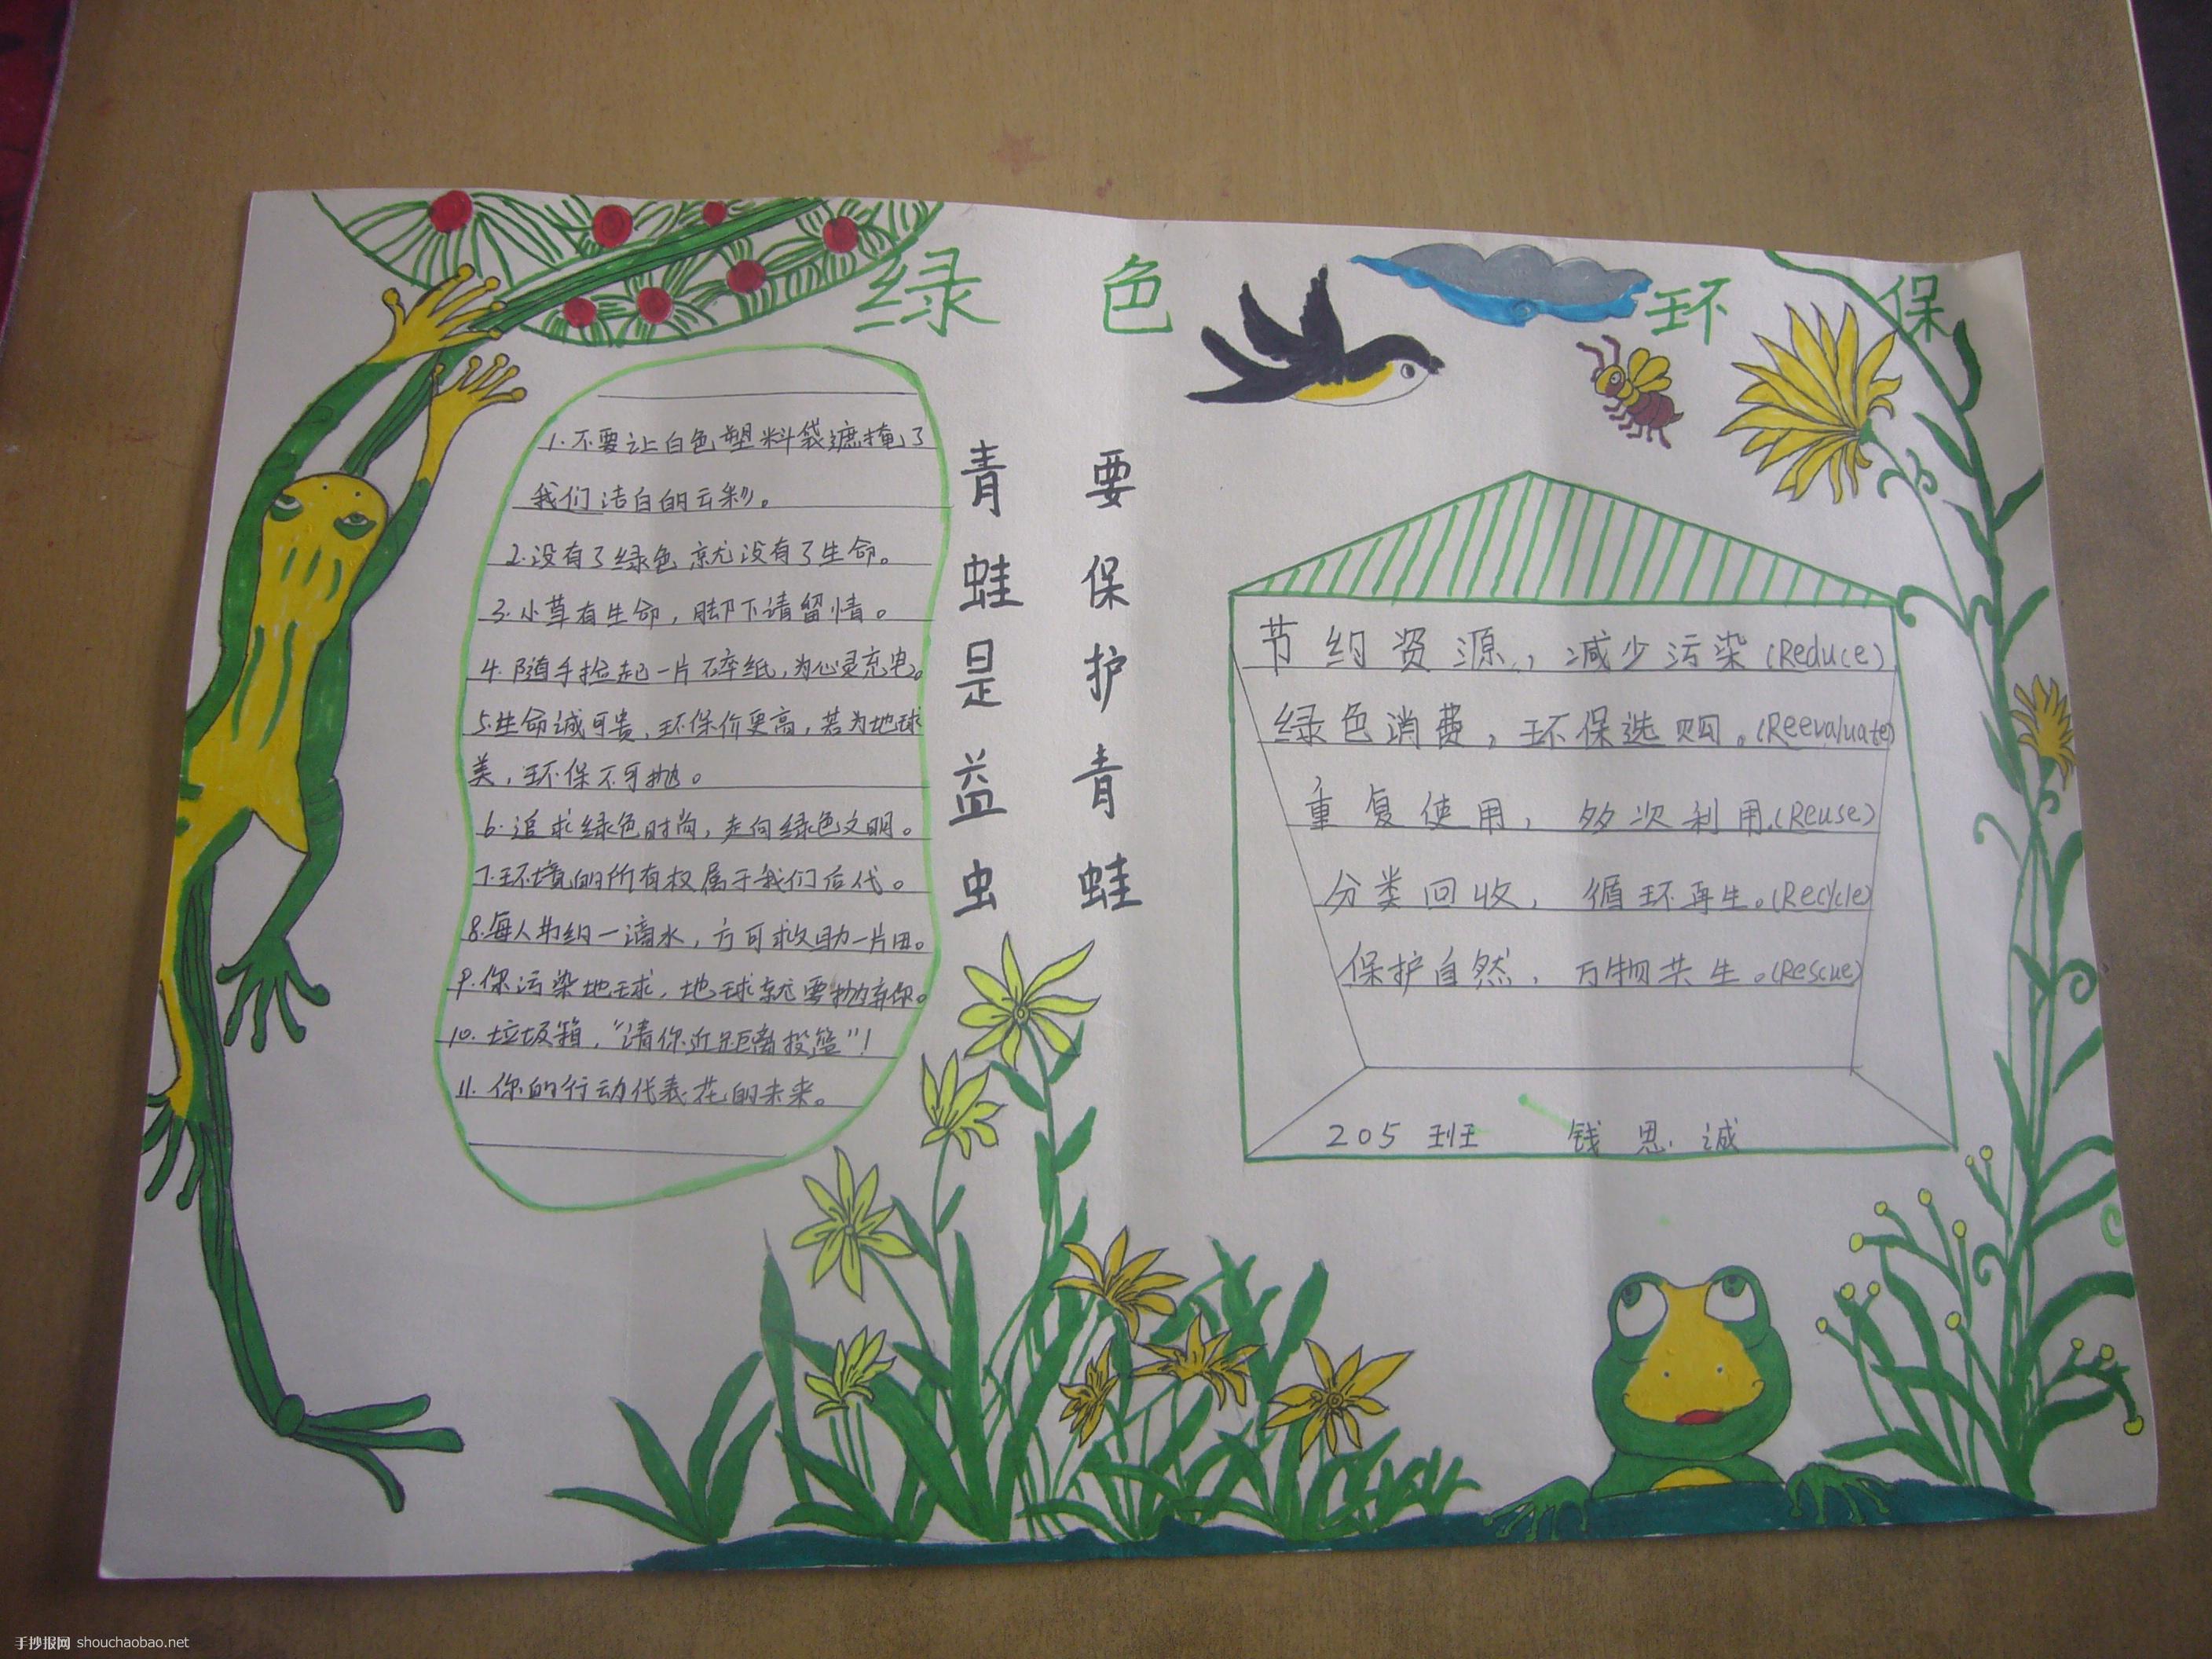 绿色环保
1.不要让白色塑料袋遮掩了
我们洁白的云彩。
2.没有了绿色就没有了生命。
3.小草有生命，脚下请留情。
4.随手捡起一片碎纸，为心灵充电。
5.生命诚可贵，环保价更高，若为地球
美，环保不可抛。
6.追求绿色时尚，走向绿色文明。
7.环境的所有权属于我们后代。
8.每人节约一滴水，方可救助一片田。
9.你污染地球，地球就要抛弃你。
10.垃圾箱，“请你近距离投篮”！
11.你的行动代表花的未来。
青蛙是益虫
要保护青蛙
节约资源，减少污染(Reduce)
绿色消费，环保选购。(Reevaluate)
重复使用，多次利用.(Reuse)
分类回收，循环再生。(Recycle)
保护自然，万物共生。(Rescue)
205班 钱思诚
手抄报网 shouchaobao.net